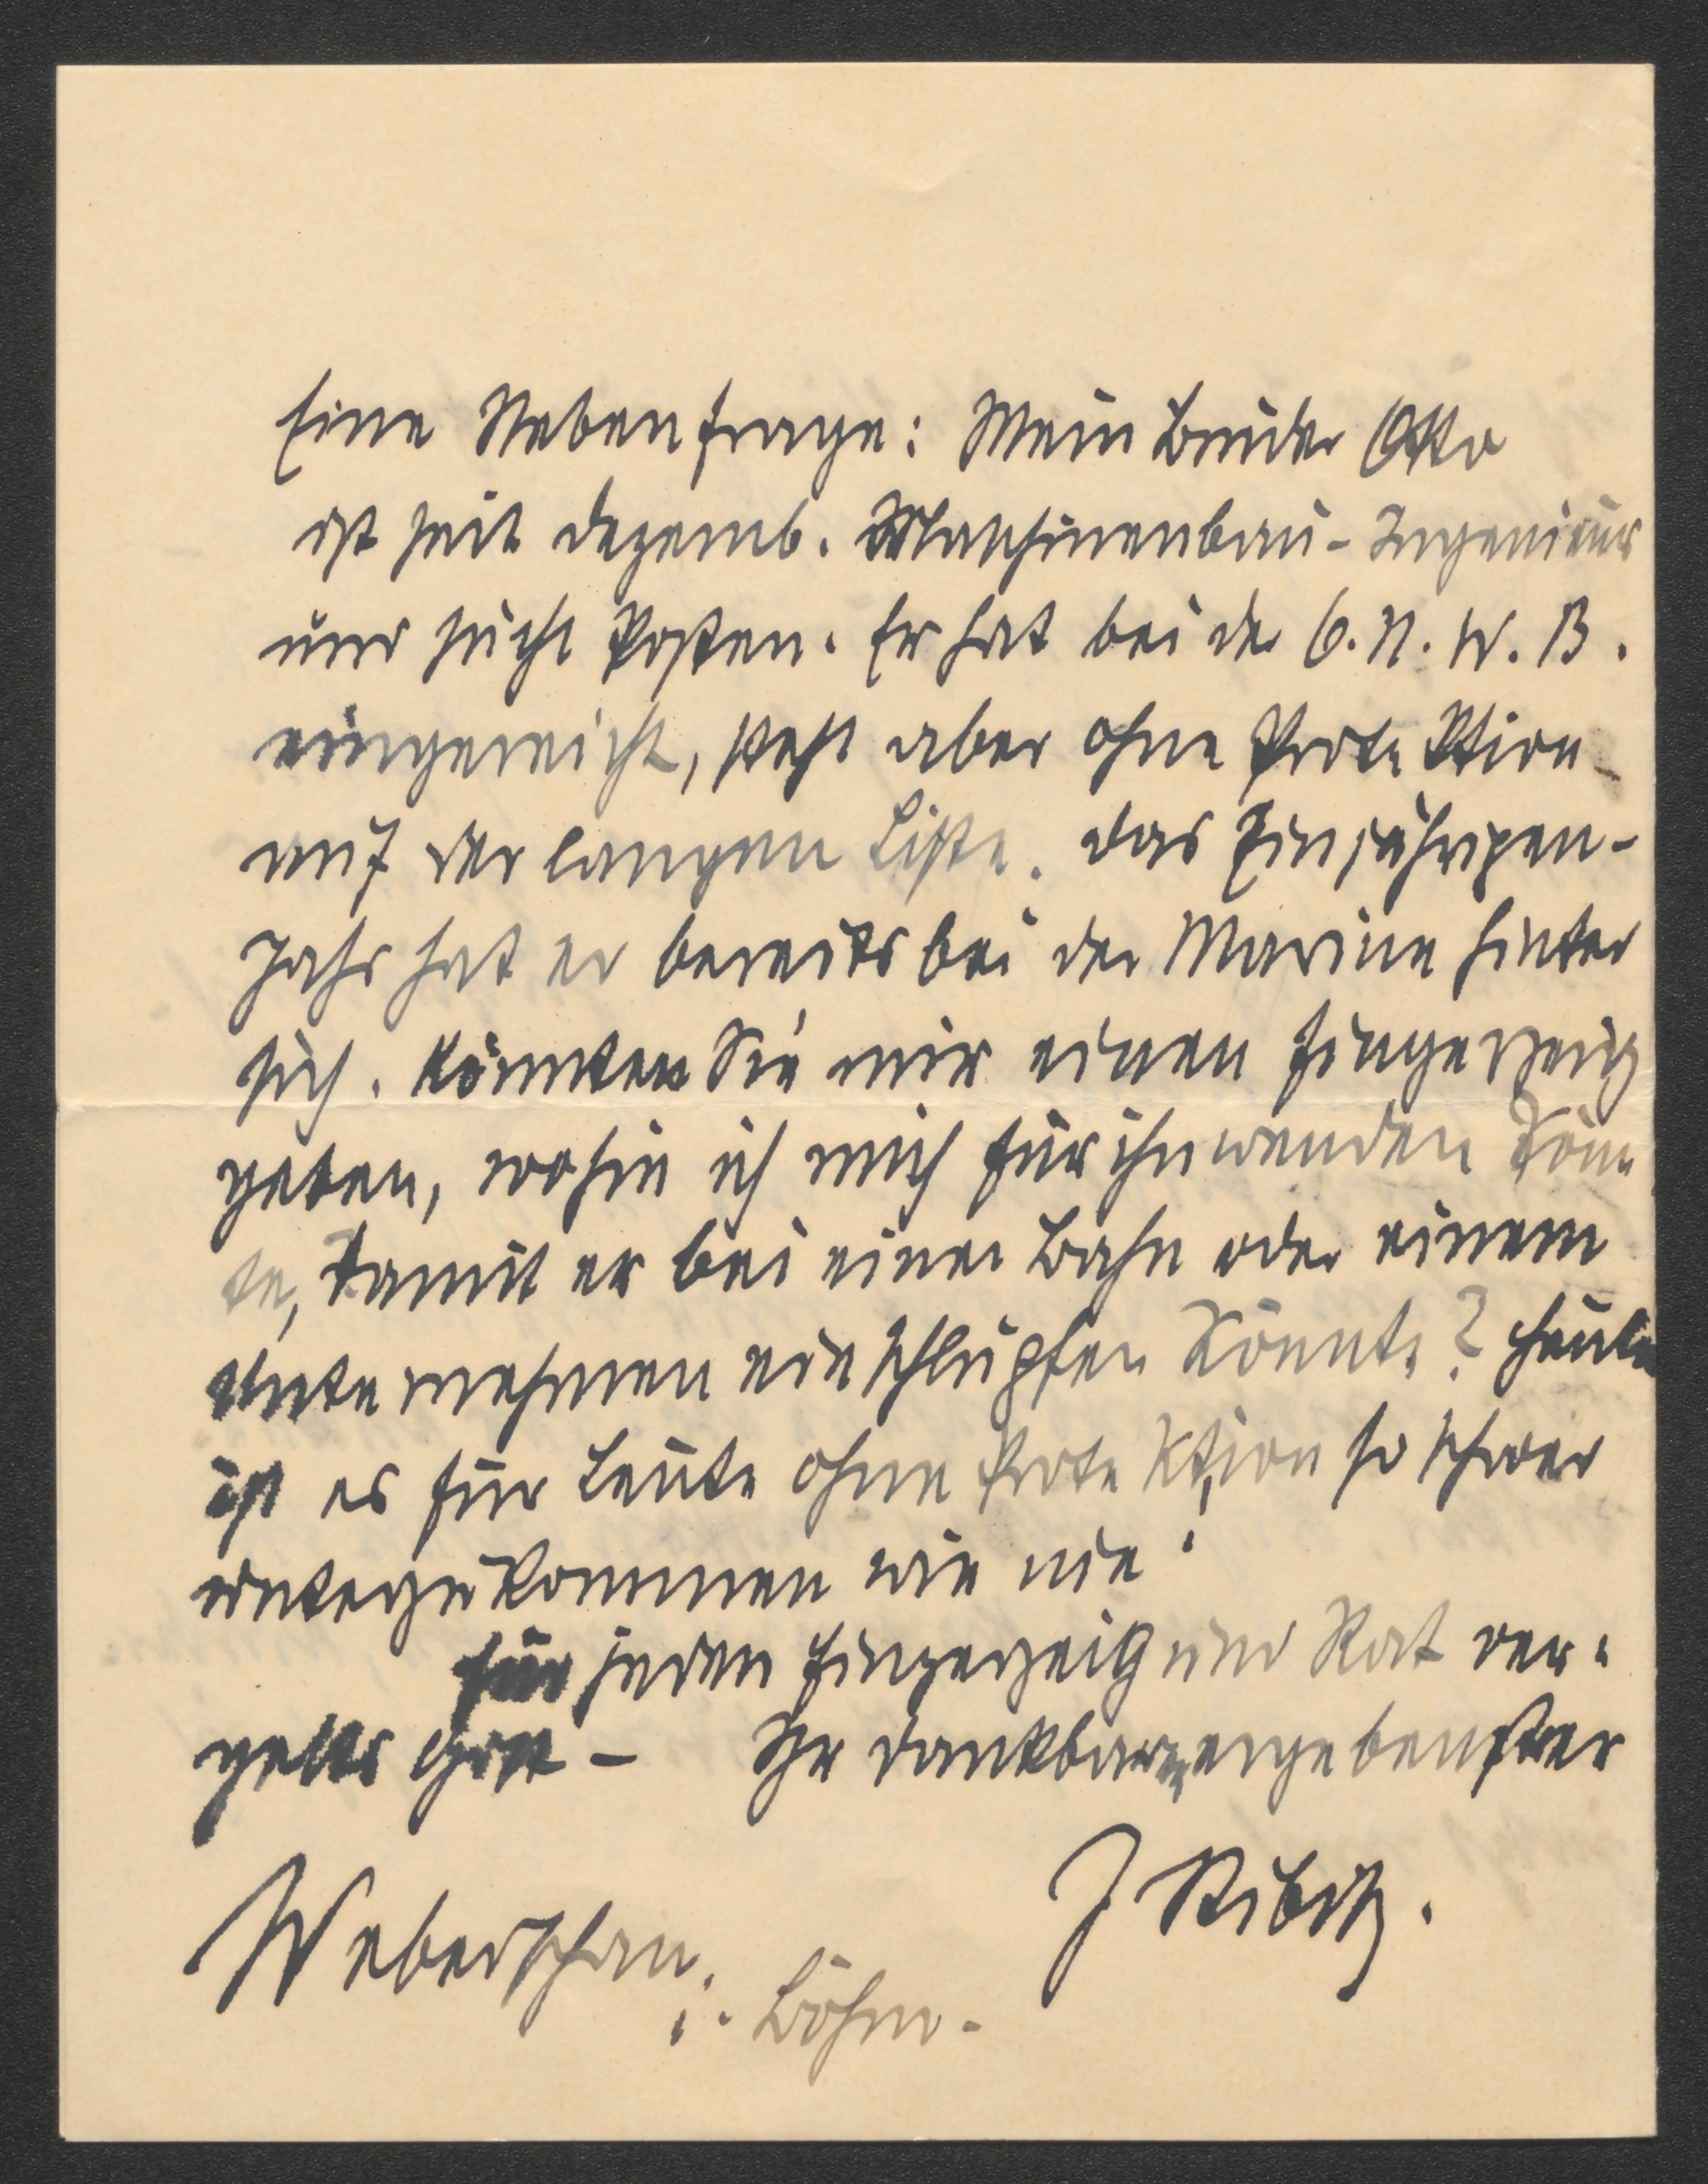 Eine Nebenfrage: Mein Bruder Otto
ist seit Dezemb. Maschinenbau-Ingenieur
und sucht Posten. Er hat bei der Ö.N.W.B.
eingereicht, steht aber ohne Protektion
auf der langen Liste. Das Einjährigen-
Jahr hat er bereits bei der Marine hinter
sich. Könnten Sie mir einen Fingerzeig
geben, wohin ich mich für ihn wenden könn
te, damit er bei einer Bahn oder einem
Unternehmen einschlüpfen könnte? Heute
ist es für Leute ohne Protektion so schwer
unterzukommen wie nie!
Für jeden Fingerzeig und Rat ver-
gelts Gott – Ihr dankbar ergebenster
J Stibitz.
Weberschan.
i. Böhm.